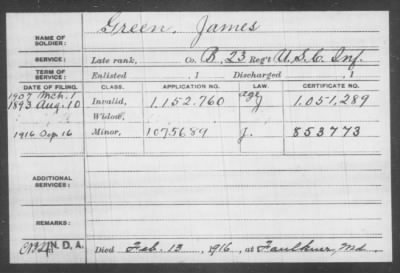 NAME OF SOLDIER: Green, James
SERVICE: Late rank, Co. B, 23 Reg't U.S.C. Inf.
TERM OF SERVICE: Enlisted , 1 Discharged , 1
DATE OF FILING. CLASS. APPLICATION NO. LAW. CERTIFICATE NO.
1907 Mch. 1 age
1893 Aug. 10 Invalid, 1.152.760 J 1.051.289
Widow,
1916 Sep. 16 Minor, 1075689 J. 853773
ADDITIONAL SERVICES:
REMARKS:
N. D. A. Died Feb. 13, 1916, at Faulkner, Md.